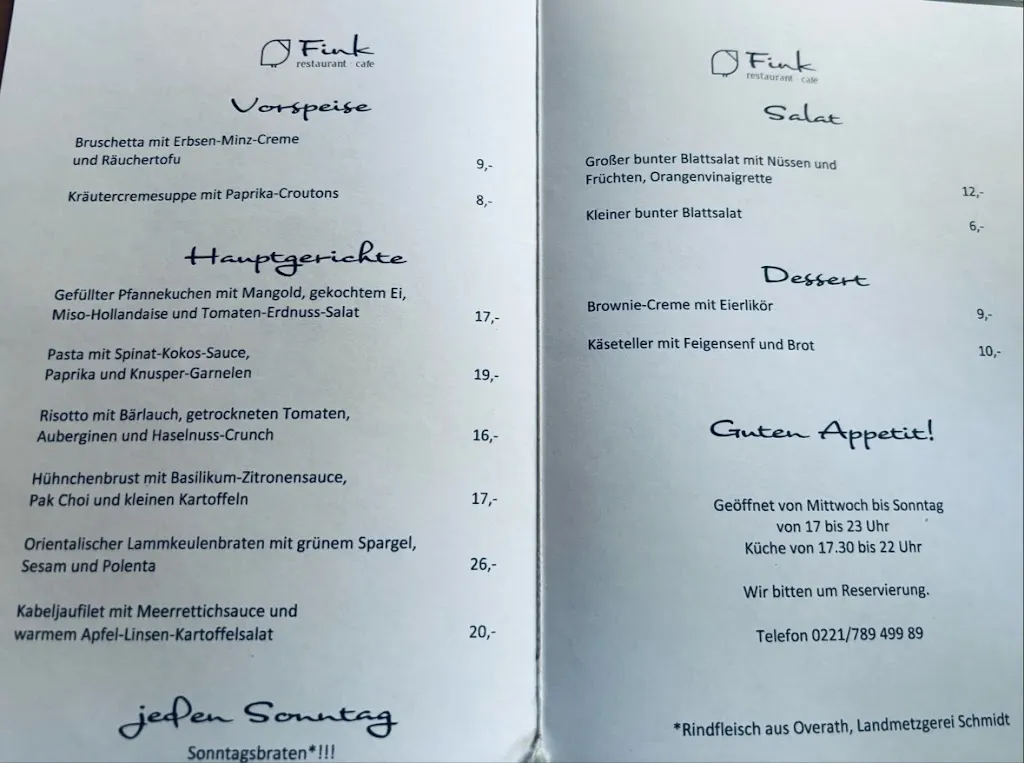 Fink
restaurant · cafe
Vorspeise
Bruschetta mit Erbsen-Minz-Creme
und Räuchertofu 9,-
Kräutercremesuppe mit Paprika-Croutons 8,-
Hauptgerichte
Gefüllter Pfannekuchen mit Mangold, gekochtem Ei,
Miso-Hollandaise und Tomaten-Erdnuss-Salat 17,-
Pasta mit Spinat-Kokos-Sauce,
Paprika und Knusper-Garnelen 19,-
Risotto mit Bärlauch, getrockneten Tomaten,
Auberginen und Haselnuss-Crunch 16,-
Hühnchenbrust mit Basilikum-Zitronensauce,
Pak Choi und kleinen Kartoffeln 17,-
Orientalischer Lammkeulenbraten mit grünem Spargel,
Sesam und Polenta 26,-
Kabeljaufilet mit Meerrettichsauce und
warmem Apfel-Linsen-Kartoffelsalat 20,-
jeden Sonntag
Sonntagsbraten*!!!
Fink
restaurant · cafe
Salat
Großer bunter Blattsalat mit Nüssen und
Früchten, Orangenvinaigrette 12,-
Kleiner bunter Blattsalat 6,-
Dessert
Brownie-Creme mit Eierlikör 9,-
Käseteller mit Feigensenf und Brot 10,-
Guten Appetit!
Geöffnet von Mittwoch bis Sonntag
von 17 bis 23 Uhr
Küche von 17.30 bis 22 Uhr
Wir bitten um Reservierung.
Telefon 0221/789 499 89
*Rindfleisch aus Overath, Landmetzgerei Schmidt